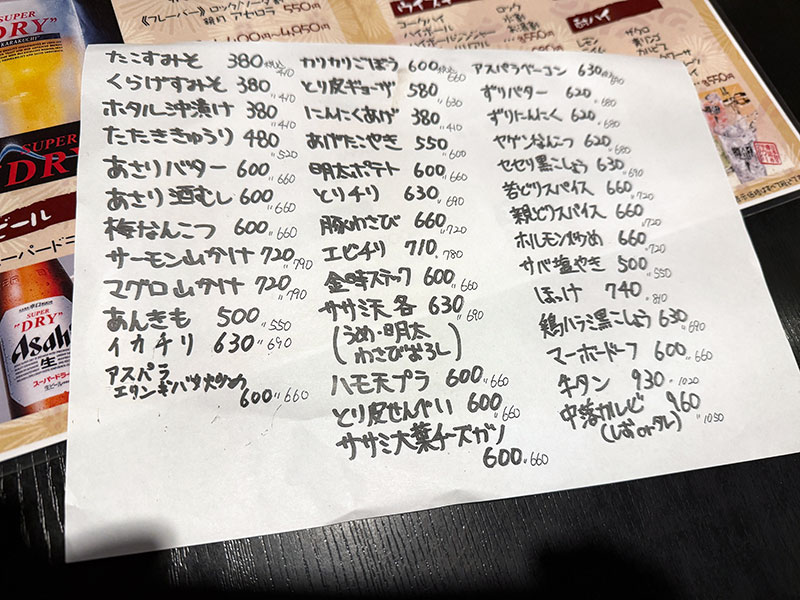 SUPER
"DRY"
KARAKUCHI
SUPER
DRY
ビール
スーパードラ
SUPER
"DRY"
Asahi
生
スーパードラ
《フレーバー》ロック/ソーダ割
550円
4,050円
ウイスキー
コークハイ
ロック
水割
お湯割
¥550円
酎ハイ
ザクロ
レモン
カルピス
¥550円
たこすみそ 380税込410
くらげすみそ 380〃410
ホタル沖漬け 380〃410
たたききゅうり 480〃520
あさりバター 600〃660
あさり酒むし 600〃660
梅なんこつ 600〃660
サーモン山かけ 720〃790
マグロ山かけ 720〃790
あんきも 500〃550
イカチリ 630〃690
アスパラ
エリンギバタ炒め
600〃660
カリカリごぼう 600税込660
とり皮ギョーザ 580〃630
にんにくあげ 380〃410
あげたこやき 550〃600
明太ポテト 600〃660
とりチリ 630〃690
豚わさび 660〃720
エビチリ 710〃780
金時スティック 600〃660
ササミ天各 630〃690
(うめ・明太
わさびおろし)
ハモ天プラ 600〃660
とり皮せんべい 600〃660
ササミ大葉チーズカツ
600〃660
アスパラベーコン 630税込690
ずりバター 620〃680
ずりにんにく 620〃680
ヤゲンなんこつ 620〃680
セセリ黒こしょう 630〃690
若どりスパイス 660〃720
親どりスパイス 660〃720
ホルモン炒め 660〃720
サバ塩やき 500〃550
ほっけ 740〃810
鶏ハラミ黒こしょう 630〃690
マーボードーフ 600〃660
牛タン 930〃1020
中落カルビ 960〃1050
(しおorタレ)